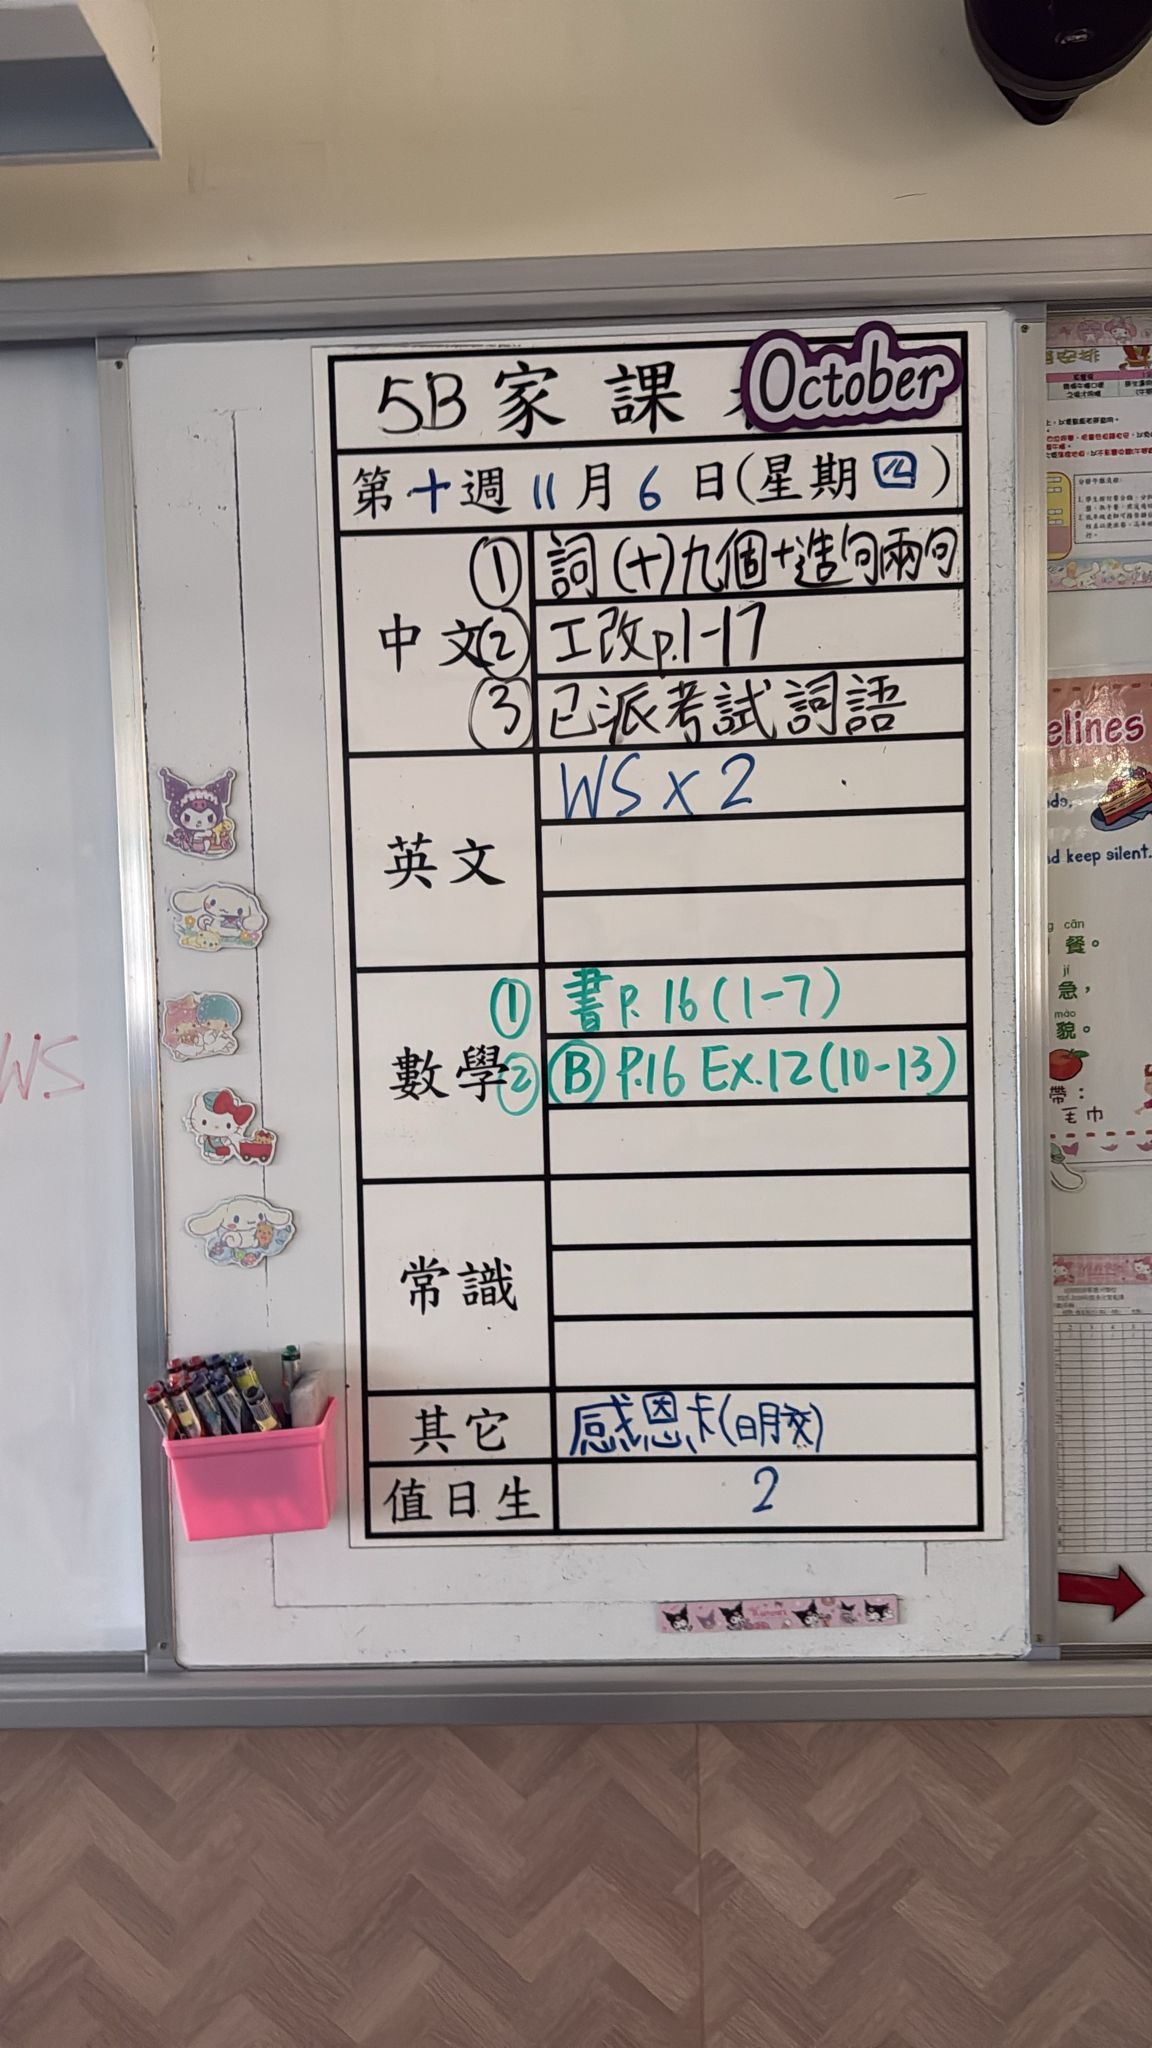 5B 家 課
October
第 十 週 11 月 6 日 (星 期 四)
中 文
① 詞(十)九個+造句兩句
② 工改p.1-17
③ 已派考試詞語
英 文
WS x 2
數 學
① 書 P. 16 (1-7)
② Ⓑ P.16 EX.12 (10-13)
常 識
其 它
感恩卡(明交)
值 日 生
2
WS
elines
nd keep silent.
cān
餐。
jí
急，
mào
貌。
帶：
毛巾